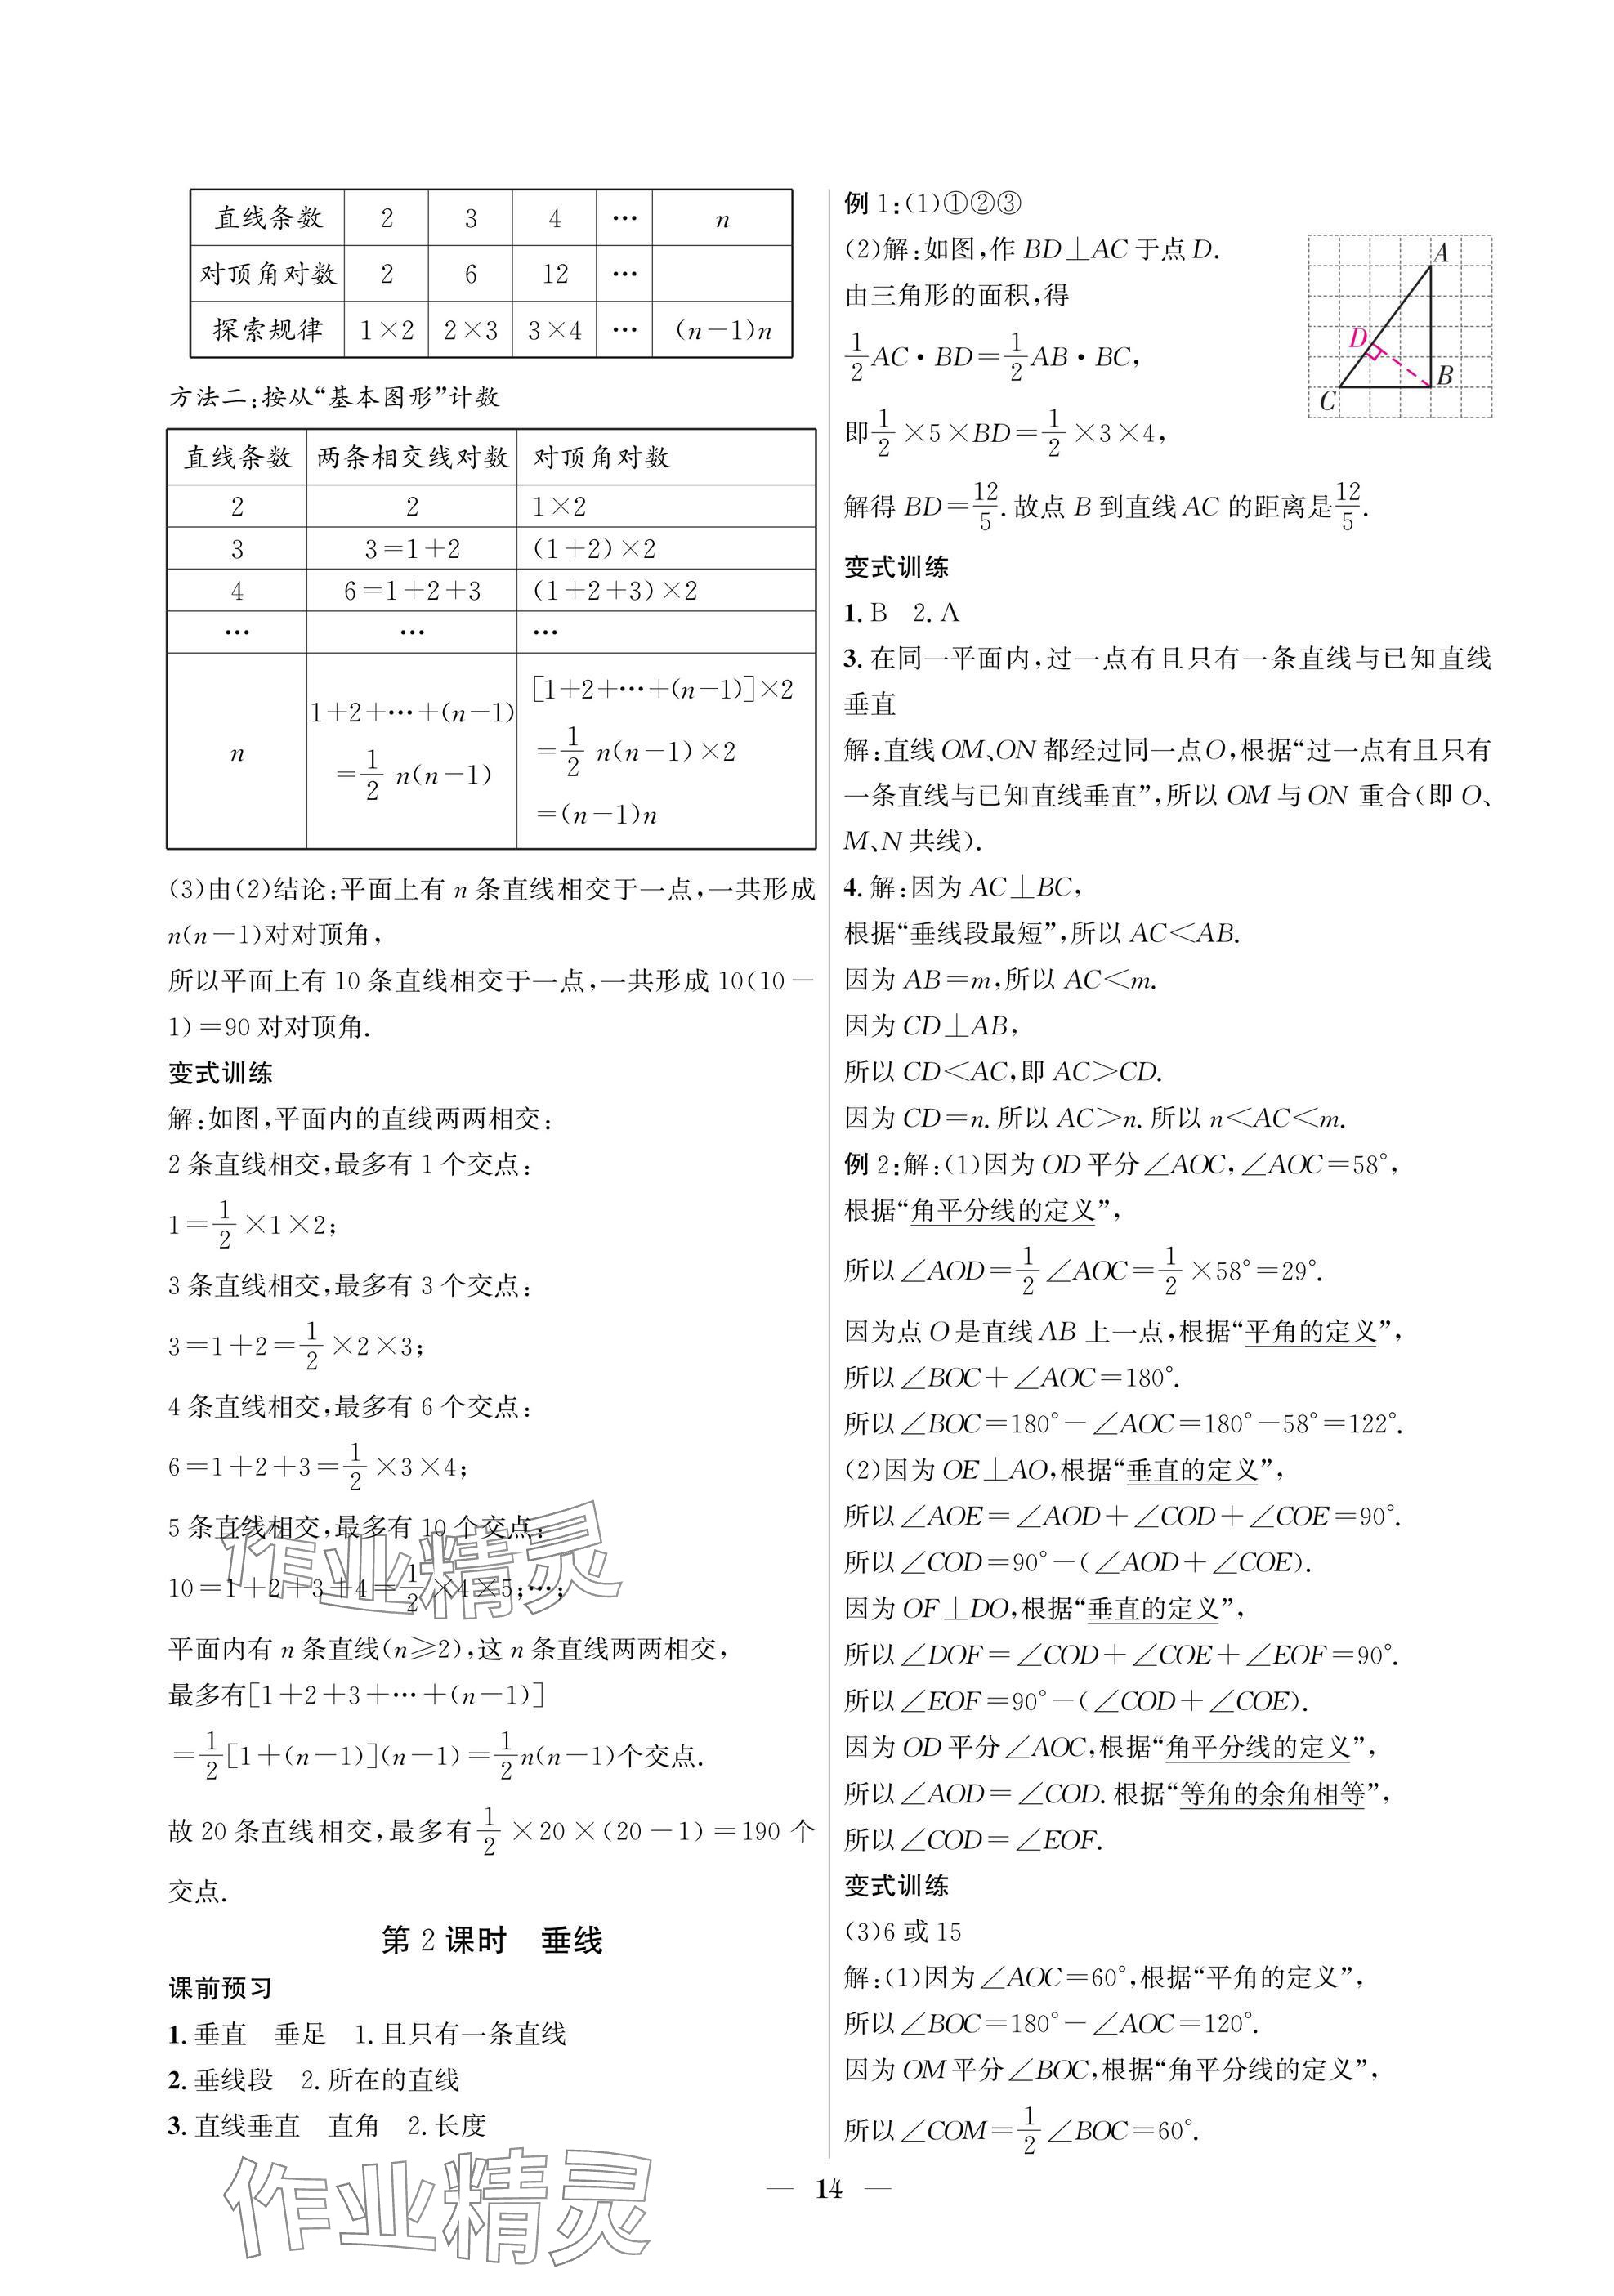 直线条数 2 3 4 … n
对顶角对数 2 6 12 …
探索规律 1×2 2×3 3×4 … (n−1)n
方法二:按从“基本图形”计数
直线条数 两条相交线对数 对顶角对数
2 2 1×2
3 3=1+2 (1+2)×2
4 6=1+2+3 (1+2+3)×2
… … …
n 1+2+…+(n−1)=1/2 n(n−1) [1+2+…+(n−1)]×2=1/2 n(n−1)×2=(n−1)n
(3)由(2)结论:平面上有 n 条直线相交于一点,一共形成
n(n−1)对对顶角,
所以平面上有 10 条直线相交于一点,一共形成 10(10−
1)=90 对对顶角.
变式训练
解:如图,平面内的直线两两相交:
2 条直线相交,最多有 1 个交点:
1=1/2×1×2;
3 条直线相交,最多有 3 个交点:
3=1+2=1/2×2×3;
4 条直线相交,最多有 6 个交点:
6=1+2+3=1/2×3×4;
5 条直线相交,最多有 10 个交点:
10=1+2+3+4=1/2×4×5;…;
平面内有 n 条直线(n≥2),这 n 条直线两两相交,
最多有[1+2+3+…+(n−1)]
=1/2[1+(n−1)](n−1)=1/2n(n−1)个交点.
故 20 条直线相交,最多有1/2×20×(20−1)=190 个
交点.
第 2 课时 垂线
课前预习
1. 垂直 垂足 1. 且只有一条直线
2. 垂线段 2. 所在的直线
3. 直线垂直 直角 2. 长度
例 1:(1)①②③
(2)解:如图,作 BD⊥AC 于点 D.
由三角形的面积,得
1/2AC·BD=1/2AB·BC,
即1/2×5×BD=1/2×3×4,
解得 BD=12/5.故点 B 到直线 AC 的距离是12/5.
A
D
B
C
变式训练
1. B 2. A
3. 在同一平面内,过一点有且只有一条直线与已知直线
垂直
解:直线 OM、ON 都经过同一点O,根据“过一点有且只有
一条直线与已知直线垂直”,所以 OM 与 ON 重合(即 O、
M、N 共线).
4. 解:因为 AC⊥BC,
根据“垂线段最短”,所以 AC<AB.
因为 AB=m,所以 AC<m.
因为 CD⊥AB,
所以 CD<AC,即 AC>CD.
因为 CD=n. 所以 AC>n. 所以 n<AC<m.
例 2:解:(1)因为 OD 平分∠AOC,∠AOC=58°,
根据“角平分线的定义”,
所以∠AOD=1/2∠AOC=1/2×58°=29°.
因为点 O 是直线 AB 上一点,根据“平角的定义”,
所以∠BOC+∠AOC=180°.
所以∠BOC=180°−∠AOC=180°−58°=122°.
(2)因为 OE⊥AO,根据“垂直的定义”,
所以∠AOE=∠AOD+∠COD+∠COE=90°.
所以∠COD=90°−(∠AOD+∠COE).
因为 OF⊥DO,根据“垂直的定义”,
所以∠DOF=∠COD+∠COE+∠EOF=90°.
所以∠EOF=90°−(∠COD+∠COE).
因为 OD 平分∠AOC,根据“角平分线的定义”,
所以∠AOD=∠COD. 根据“等角的余角相等”,
所以∠COD=∠EOF.
变式训练
(3)6 或 15
解:(1)因为∠AOC=60°,根据“平角的定义”,
所以∠BOC=180°−∠AOC=120°.
因为 OM 平分∠BOC,根据“角平分线的定义”,
所以∠COM=1/2∠BOC=60°.
作业精灵
作业精灵
— 14 —